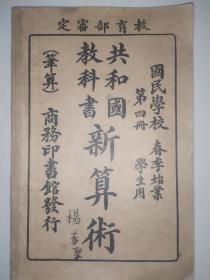 教育部審定
國民學校 春季始業
第四冊 學生用
共和國
教科書
新算術
(筆算)
商務印書館發行
楊